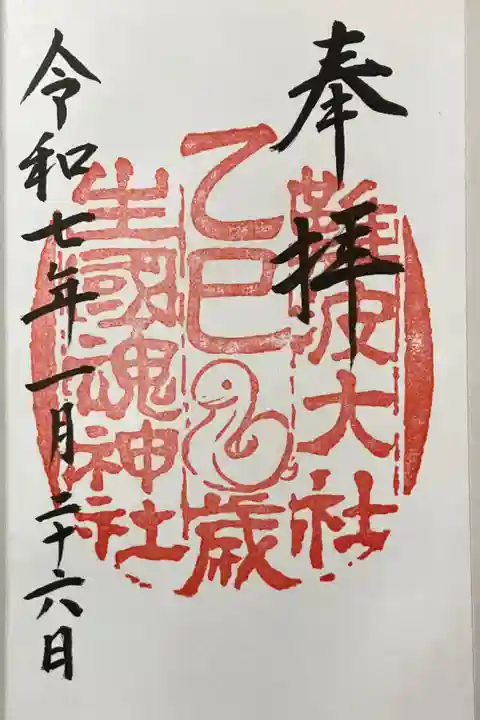 奉拝
難波大社
乙巳歳
生國魂神社
令和七年一月二十六日